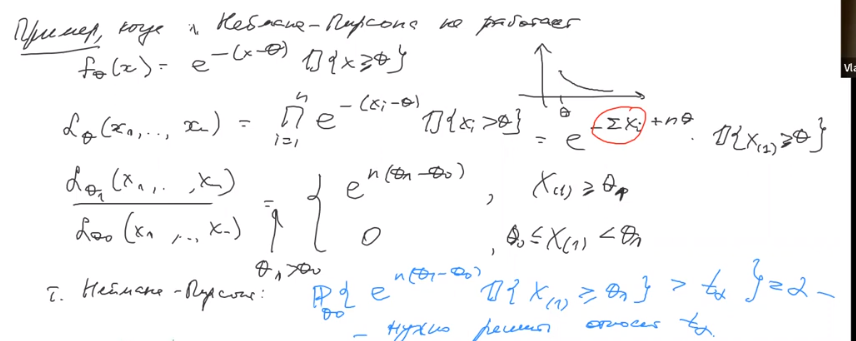 Пример, когда л. Неймана-Пирсона не работает
f_θ(x) = e^{-(x-θ)} 𝟙{x ≥ θ}
θ
ℒ_θ(x_1,..., x_n) = ∏_{i=1}^{n} e^{-(x_i-θ)} 𝟙{x_i > θ} = e^{-Σx_i + nθ} · 𝟙{X_{(1)} ≥ θ}
ℒ_{θ_1}(x_1,..., x_n) / ℒ_{θ_0}(x_1,..., x_n) = { e^{n(θ_1-θ_0)}, X_{(1)} ≥ θ_1
0, θ_0 ≤ X_{(1)} < θ_1
θ_1 > θ_0
т. Неймана-Пирсона: P_{θ_0}{ e^{n(θ_1-θ_0)} 𝟙{X_{(1)} ≥ θ_1} > t_α } = α -
- нужно решить относит t_α
Vla